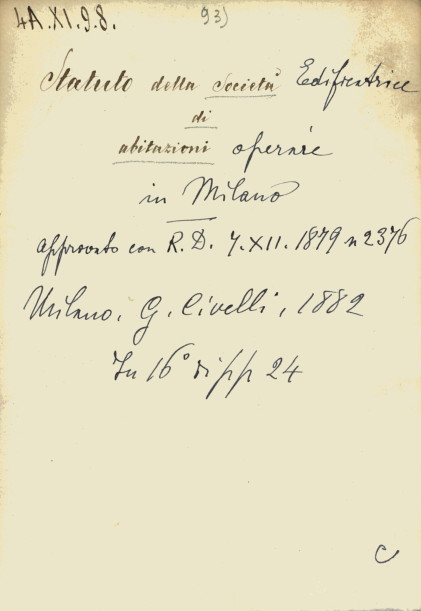 4A.XI.9.8. 93)
Statuto della Società Edificatrice
di
abitazioni operaie
in Milano
approvato con R. D. 7.XII.1879 n 2376
Milano, G. Civelli, 1882
In 16° di pp 24
C